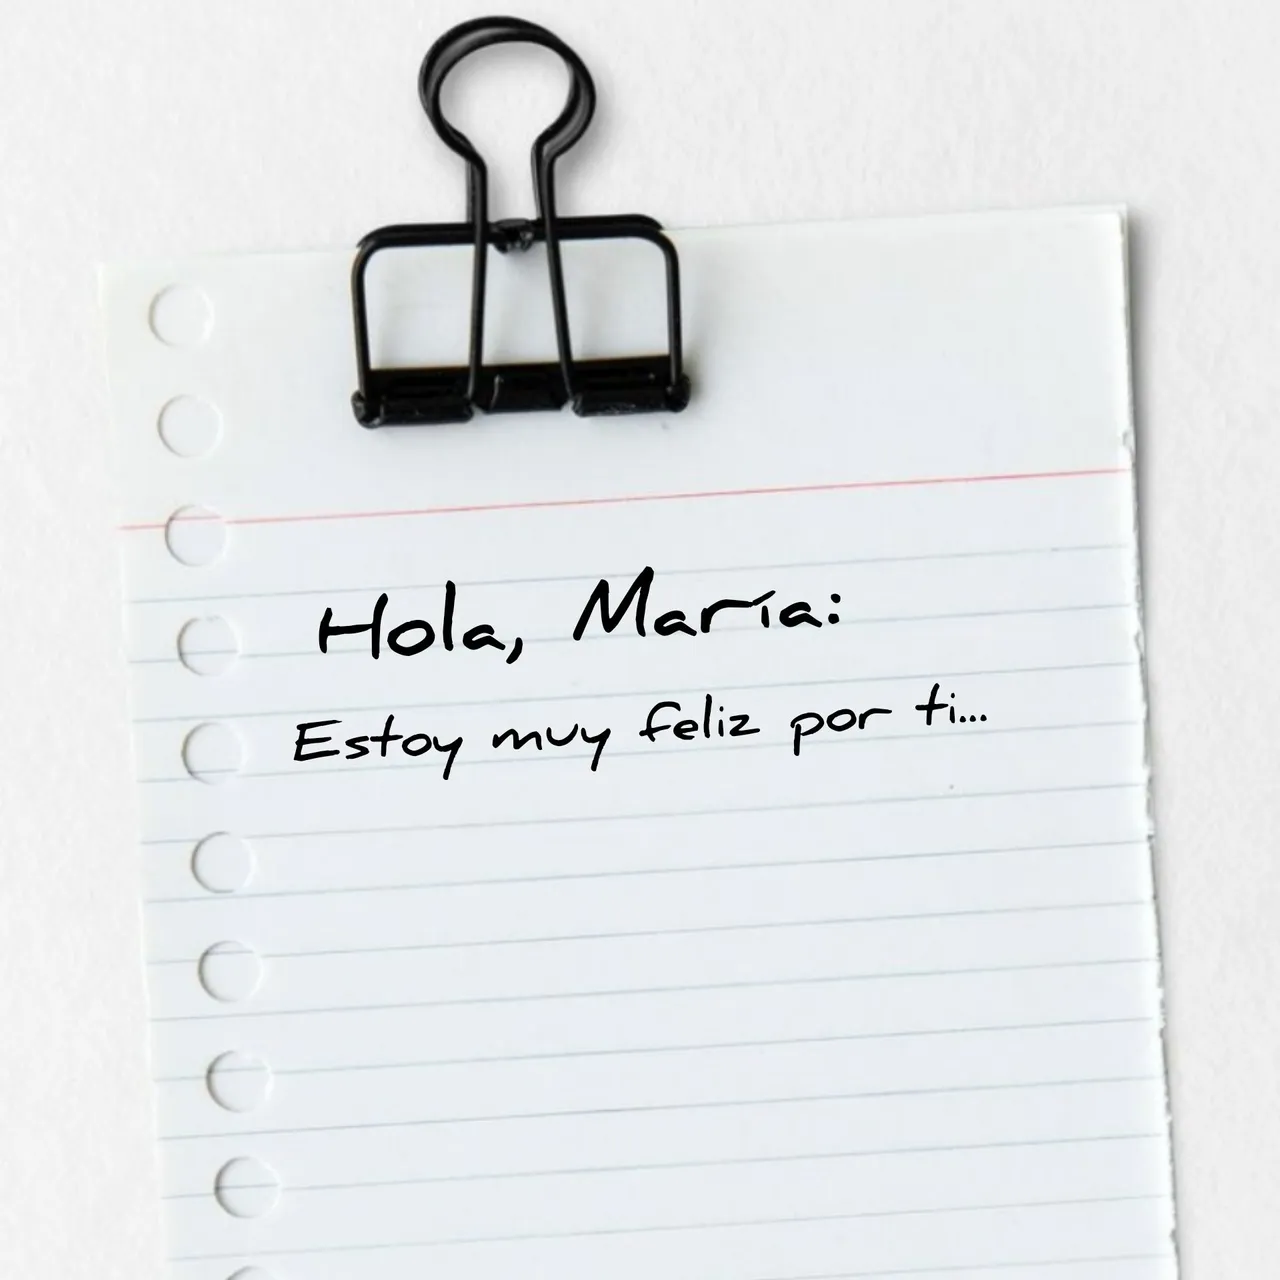 Hola, María:
Estoy muy feliz por ti...